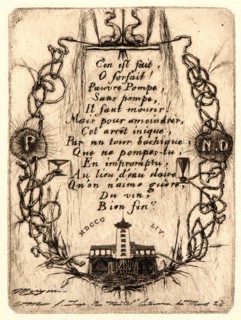 C'en est fait,
O forfait!
Pauvre Pompe
Sans pompe,
Il faut mourir!
Mais pour amoindrir
Cet arrêt inique,
Par un tour bachique,
Que ne pompes-tu
En impromptu,
Au lieu d'eau claire
Qu'on n'aime guère,
Du vin,
Bien fin?
P
N.D
MDCCC LIV